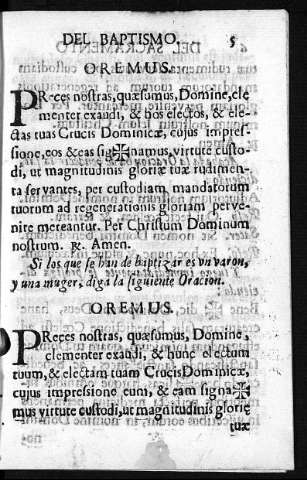 DEL BAPTISMO. 5
OREMUS.
PReces nostras, quæsumus, Domine, cle
menter exaudi, & hos electos, & ele-
ctas tuas Crucis Dominicæ, cujus impres-
sione, eos & eas sig✠namus, virtute custo-
di, ut magnitudinis gloriæ tuæ rudimen-
ta servantes, per custodiam mandatorum
tuorum ad regenerationis gloriam perve-
nire mereantur. Per Christum Dominum
nostrum. ℟. Amen.
Si los que se han de baptizar es vn varon,
y una muger, diga la siguiente Oracion.
OREMUS.
PReces nostras, quæsumus, Domine,
clementer exaudi, & hunc electum
tuum, & electam tuam Crucis Dominicæ,
cujus impressione eum, & eam signa✠
mus virtute custodi, ut magnitudinis glorię
tuæ